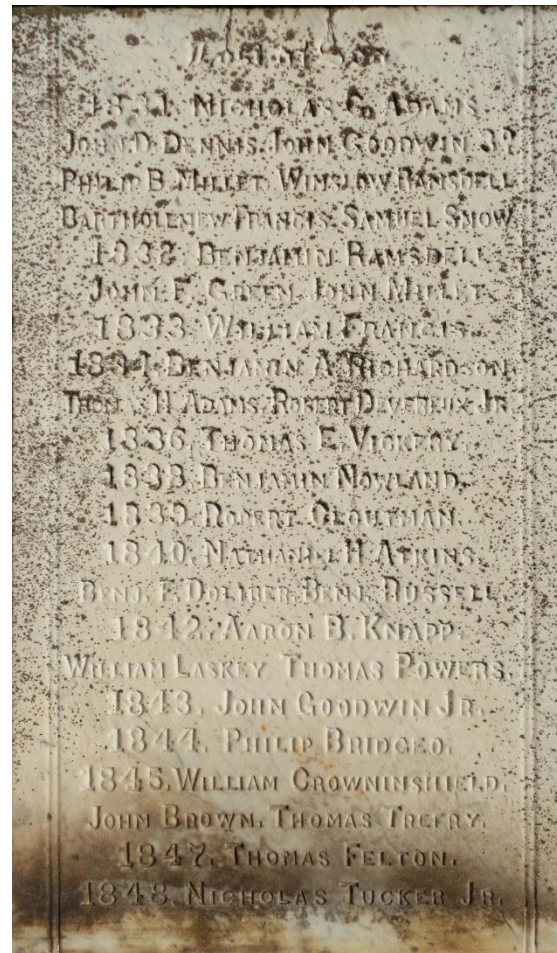 Lost at Sea
1831. NICHOLAS G. ADAMS.
JOHN. D. DENNIS. JOHN. GOODWIN. 3D
PHILIP B. MILLET. WINSLOW RAMSDELL
BARTHOLEMEW FRANCIS. SAMUEL SNOW.
1832. BENJAMIN RAMSDELL
JOHN. F. GREEN. JOHN MILLET.
1833. WILLIAM FRANCIS.
1834. BENJAMIN A. RICHARDSON.
THOMAS H. ADAMS. ROBERT DEVEREUX JR
1836. THOMAS E. VICKERY.
1838. BENJAMIN NOWLAND.
1839. ROBERT CLOUTMAN.
1840. NATHANIEL H. ATKINS.
BENJ. F. DOLIBER. BENJ. RUSSELL.
1842. AARON B. KNAPP.
WILLIAM LASKEY THOMAS POWERS.
1843. JOHN GOODWIN JR.
1844. PHILIP BRIDGEO.
1845. WILLIAM CROWNINSHIELD.
JOHN BROWN. THOMAS TREFRY.
1847. THOMAS FELTON.
1848. NICHOLAS TUCKER JR.